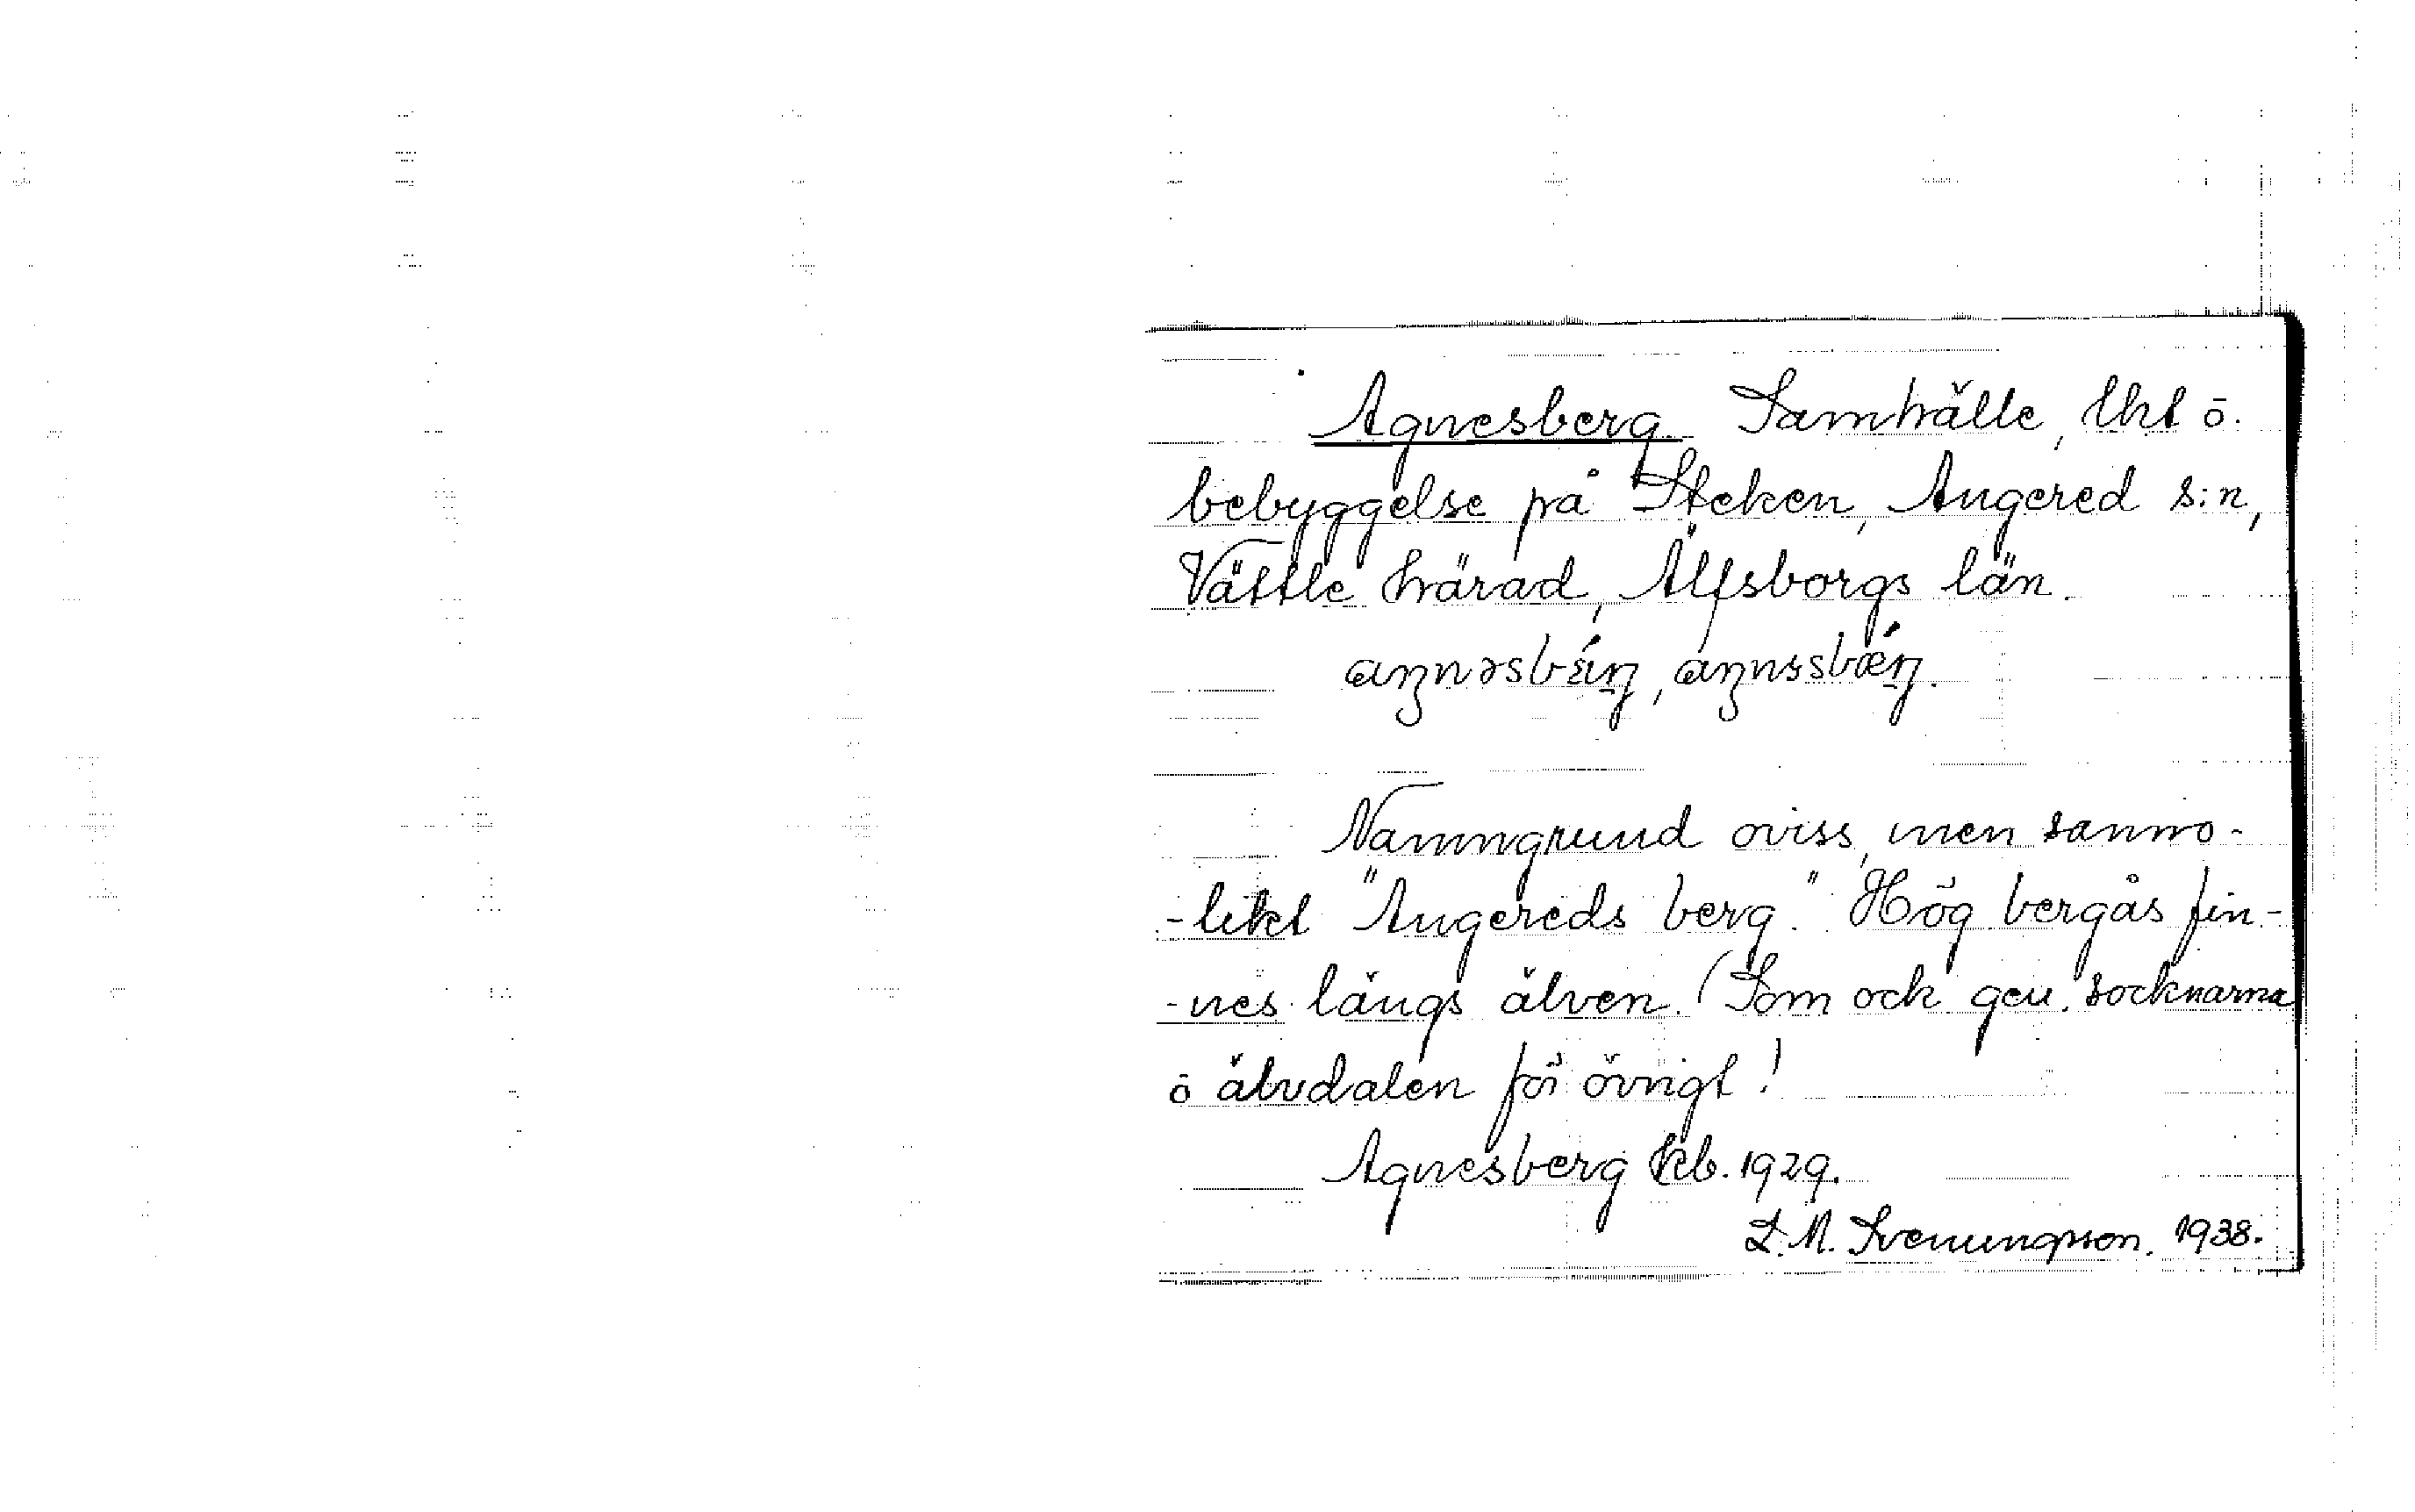 Agnesberg Samhälle, lht ō.
bebyggelse på Steken, Angered s:n,
Vättle härad, Älfsborgs län.
Namngrund oviss, men sanno-
-likt "Angereds berg." Hög bergås fin-
-nes längs älven. (Som ock gen. socknarna
ō älvdalen för övrigt!
Agnesberg kb. 1929.
L. M. Svenungsson. 1938.